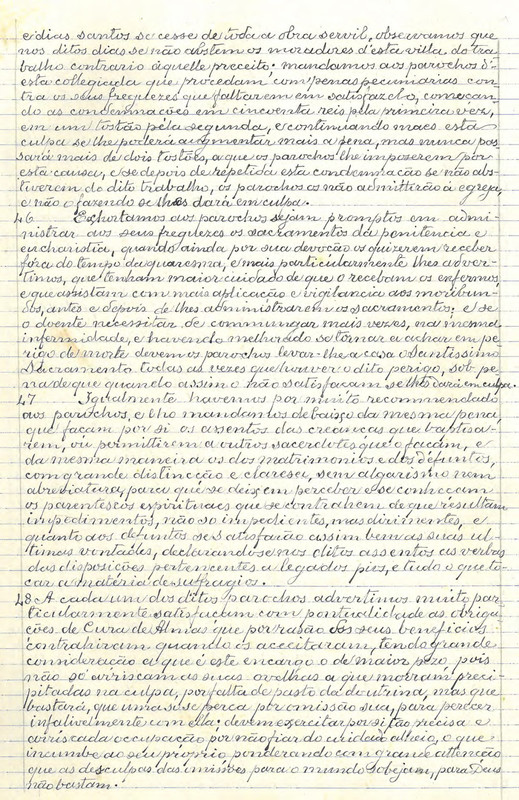 e dias santos se cesse de toda a obra servil, observamos que
nos ditos dias se não abstem os moradores d'esta villa do tra-
balho contrario áquelle preceito: mandamos aos parochos d'
esta collegiada que procedam com penas pecuniarias con-
tra os seus freguezes que faltarem em satisfazel-o, começan-
do as condemnações em cincoenta reis pela primeira vez,
em um tostão pela segunda, e continuando mais esta
culpa se lhe poderá augmentar mais a pena, mas nunca pas-
sará mais de dois tostões, a que os parochos lhe imposerem por
esta causa, e se depois de repetida esta condemnação se não abs-
tiverem do dito trabalho, os parochos os não admittirão á egreja,
e não o fazendo se lhes dará em culpa.
46 Exhortamos aos parochos sejam promptos em admi-
nistrar aos seus freguezes os sacramentos da penitencia e
eucharistia, quando ainda por sua devoção os quizerem receber
fóra do tempo da quaresma, e mais particularmente lhes adver-
timos, que tenham maior cuidado de que o recebam os enfermos,
e que assistam com mais aplicação e vigilancia aos moribun-
dos, antes e depois de lhes administrarem os sacramentos: e se
o doente necessitar de commungar mais vezes, na mesma
infermidade, e havendo melhorado se tornar a achar em pe-
rigo de morte devem os parochos levar-lhe a casa o Santissimo
Sacramento todas as vezes que houver o dito perigo, sob pe-
na de que quando assim o não satisfaçam se lhes dará em culpa.
47 Igualmente havemos por muito recommendado
aos parochos, e lho mandamos debaixo da mesma pena,
que façam por si os assentos das creanças que baptisa-
rem, ou permittirem a outros sacerdotes que o façam, e
da mesma maneira os dos matrimonios e dos defuntos,
com grande distincção e claresa, sem algarismo nem
abreviatura, para que se deixem perceber e se conheçam
os parentescos espirituaes que se contrahem de que resultam
impedimentos, não só impedientes, mas dirimentes, e
quanto aos defuntos se satisfarão assim bem as suas ul-
timas vontades, declarando-se nos ditos assentos as verbas
das disposições pertencentes a legados pios, e tudo o que to-
car a materia de sufragios.
48 A cada um dos ditos parochos advertimos muito par-
ticularmente satisfaçam com pontualidade as obriga-
ções de Cura de Almas que por rasão dos seus beneficios
contrahiram quando os acceitaram, tendo grande
consideração a que é este encargo o de maior pezo, pois
não só arriscam as suas ovelhas a que morram preci-
pitadas na culpa, por falta de pasto da doutrina, mas que
bastará, que uma só se perca por omissão sua, para perecer
infalivelmente com ella: devem exercitar por si tão precisa e
arriscada occupação por não fiar do cuidado alheio, o que
incumbe ao seu proprio ponderando com grande attenção
que as desculpas das omissões para o mundo sobejam, para Deus
não bastam.